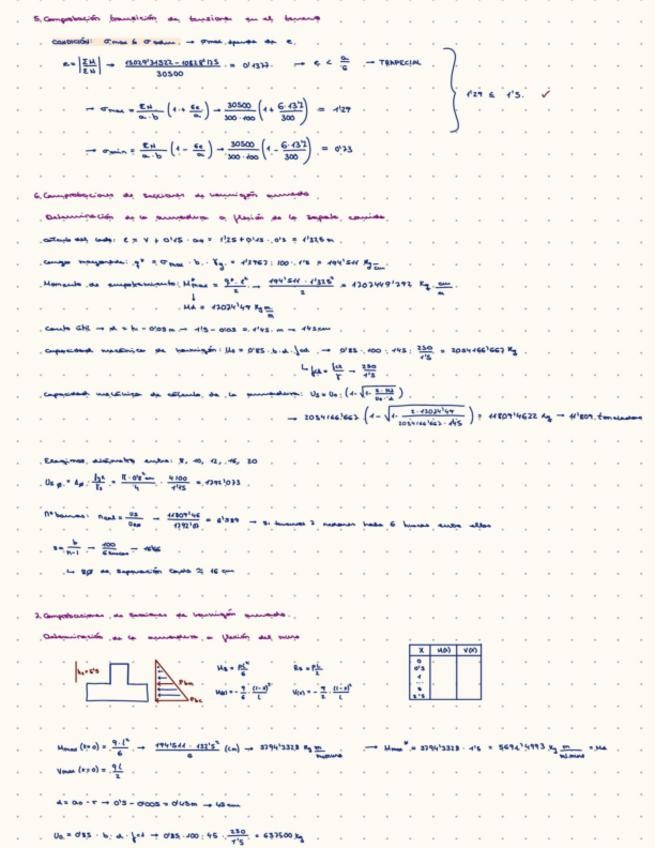 5. Comprobación transición de tensiones en el terreno
CONDICIÓN: σmax ≤ σadm. → σmax depende de e.
e = |ΣM/ΣN| → /30500 = 0'137 → e < a/6 → TRAPECIAL
→ σmax = ΣN/a·b (1 + 6e/a) → 30500/300·100 (1 + 6·13'7/300) = 1'29
1'29 ≤ 1'5. ✓
→ σmin = ΣN/a·b (1 - 6e/a) → 30500/300·100 (1 - 6·13'7/300) = 0'73
6. Comprobaciones de secciones de hormigón armado
Determinación de la armadura a flexión de la zapata corrida
Cálculo del canto: l = v + 0'15 · a0 = 1'25 + 0'15 · 0'5 = 1'325 m
Carga mayorada: q* = σmax · b · γg = 1'2967 · 100 · 1'5 = 194'511 Kg/cm
Momento de empotramiento: M*max = q*·l²/2 → 194'511 · 132'5²/2 = Kg · cm/m
Md = 17074'49 Kg m/m
Canto útil → d = h - 0'05 m → 1'5 - 0'05 = 1'45 m → 145 cm
Capacidad mecánica de hormigón: U0 = 0'85 · b · d · fcd → 0'85 · 100 · 145 · 250/1'5 = 2054166'667 Kg
fcd = fck/γ → 250/1'5
Capacidad mecánica de cálculo de la armadura: Us = U0 (1 - √1 - 2·Md/U0·d)
→ 2054166'667 (1 - √1 - 2·17074'49/2054166'667 · 1'45) = 11809'4622 Kg → 11'809 toneladas
Elegimos diámetro entre: 8, 10, 12, 16, 20
Us ø = Aø · fyk/γs = π·0'8² cm/4 · 4100/1'15 = 1792'073
nº barras: nreal = Us/Usø → 11809'46/1792'07 = 6'589 → Si tenemos 7 redondos habrá 6 huecos entre ellos
s = b/n-1 → 100/6 huecos → 16'66
↳ 8ø de separación cada ≈ 16 cm
7. Comprobaciones de secciones de hormigón armado.
Determinación de la armadura a flexión del muro
X M(x) V(x)
0
0'5
1
...
5
5'5
Mmax (x=0) = q·l²/6 → 194'511 · 132'5²/6 (cm) → 3794'3328 Kg m/m muro → Mmax* = 3794'3328 · 1'5 = 5691'4993 Kg m/m muro = Md
Vmax (x=0) = ql/2
d = a0 - r → 0'5 - 0'005 = 0'45 m → 45 cm
U0 = 0'85 · b · d · fcd → 0'85 · 100 · 45 · 250/1'5 = 637500 Kg